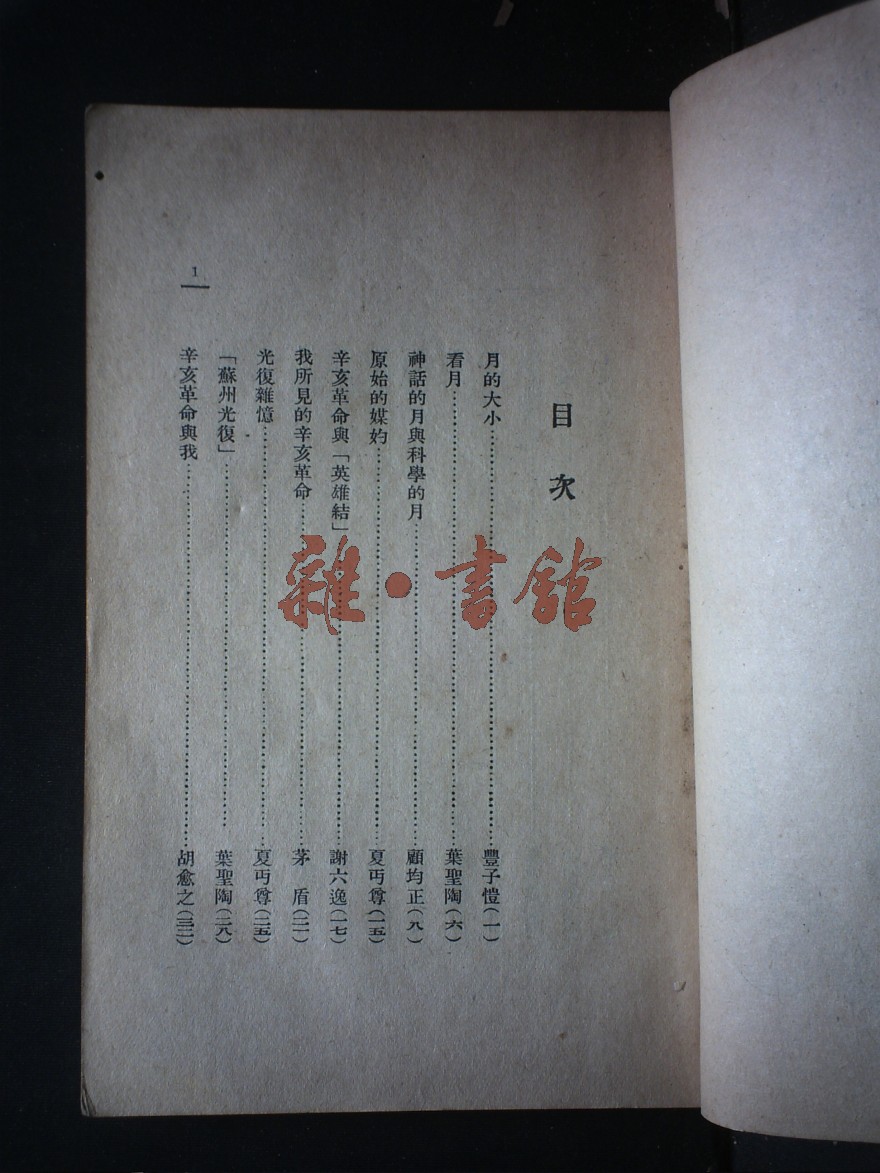 目次
月的大小……豐子愷(一)
看月……葉聖陶(六)
神話的月與科學的月……顧均正(八)
原始的媒妁……夏丏尊(一五)
辛亥革命與「英雄結」……謝六逸(一七)
我所見的辛亥革命……茅盾(二一)
光復雜憶……夏丏尊(二五)
「蘇州光復」……葉聖陶(二八)
辛亥革命與我……胡愈之(三二)
1
雜·書館